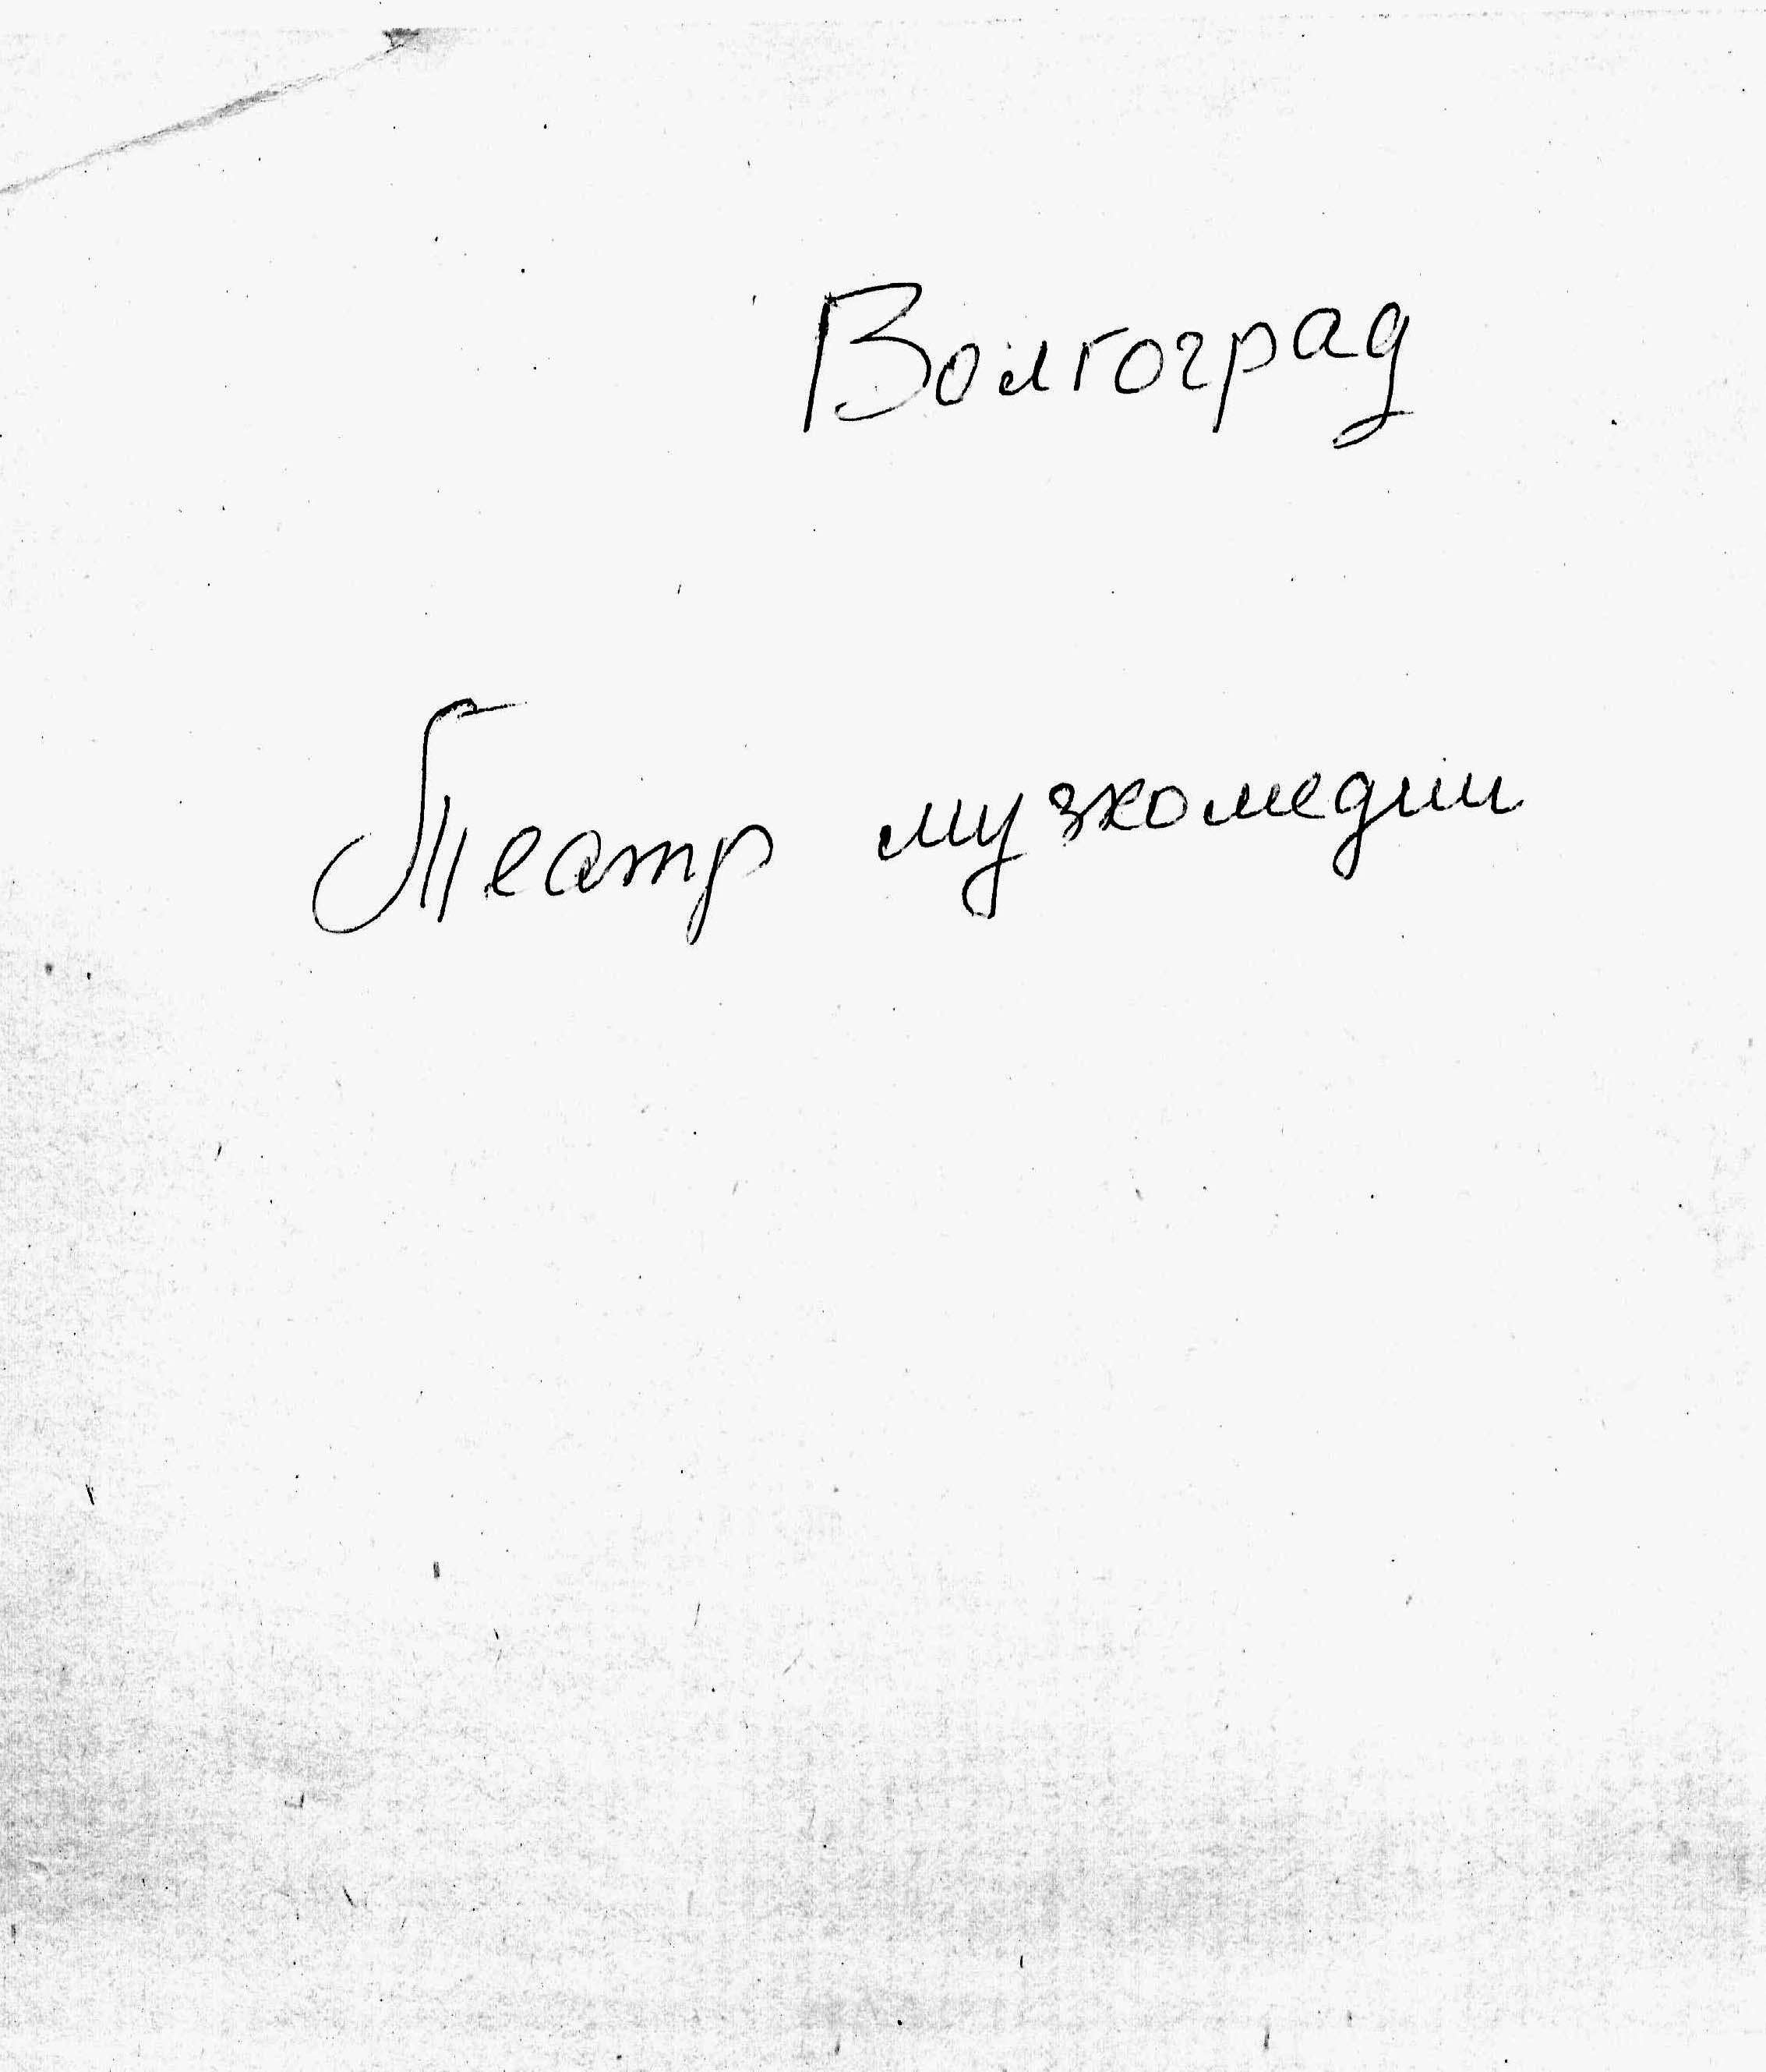 Волгоград
Театр музкомедии